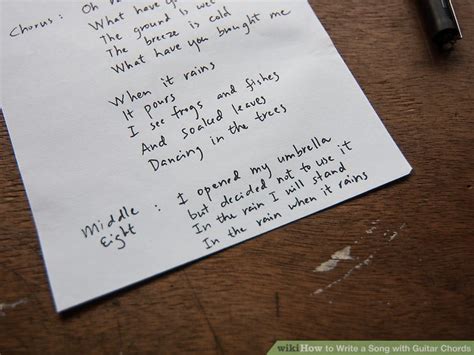 Chorus : Oh
What have
The ground is wet
The breeze is cold
What have you brought me
When it rains
It pours
I see frogs and fishes
And soaked leaves
Dancing in the trees
Middle Eight : I opened my umbrella
but decided not to use it
In the rain I will stand
In the rain when it rains
wikiHow to Write a Song with Guitar Chords